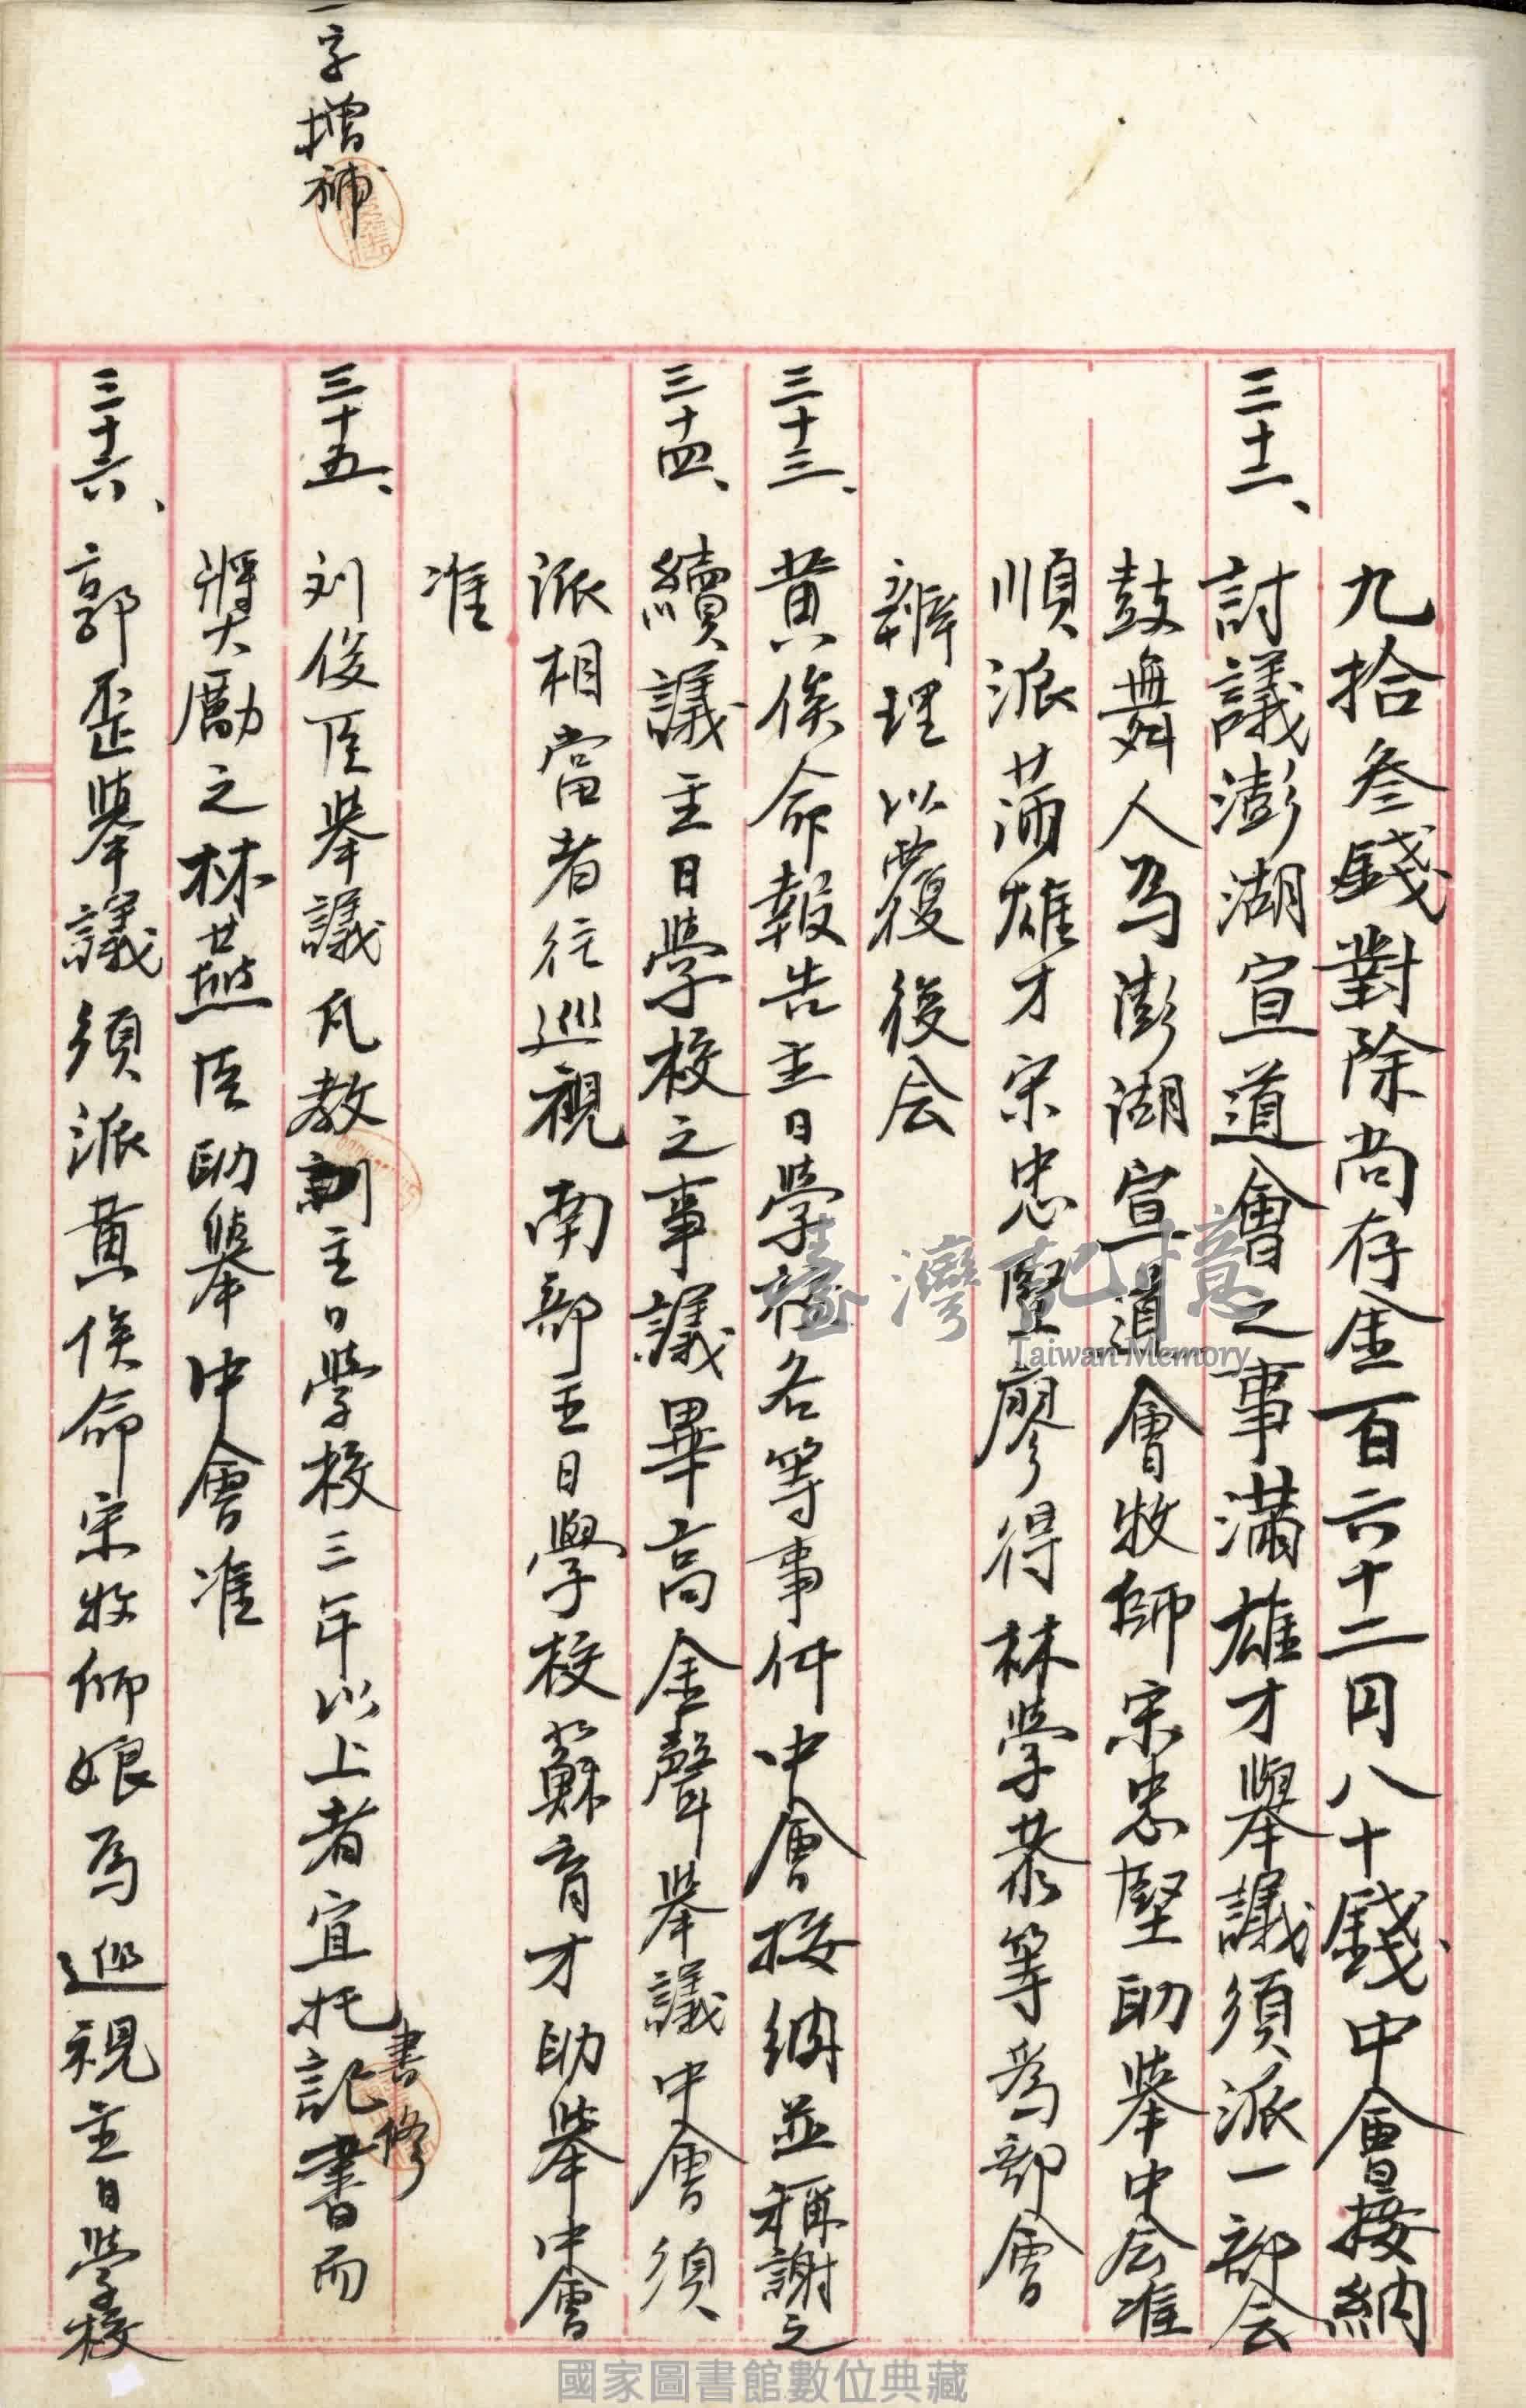 九拾叁錢對除尚存金百六十二円八十錢中會接納
三十二、討議澎湖宣道會之事滿雄才舉議須派一部会
鼓舞人為澎湖宣道會牧師宋忠堅助舉中会准
順派滿雄才宋忠堅廖得林學恭等為部會
辦理以覆後会
三十三、黃俟命報告主日學校各等事件中會接納並稱謝之
三十四、續議主日學校之事議畢高金聲舉議中會須
派相當者往巡視南部主日學校蘇育才助舉中會
准
三十五、刘俊臣舉議凡教訓主日學校三年以上者宜托記書而
書修
獎勵之林燕臣助舉中會准
三十六、郭歪舉議須派黃俟命宋牧師娘為巡視主日學校
一字增補
臺灣記憶
Taiwan Memory
國家圖書館數位典藏